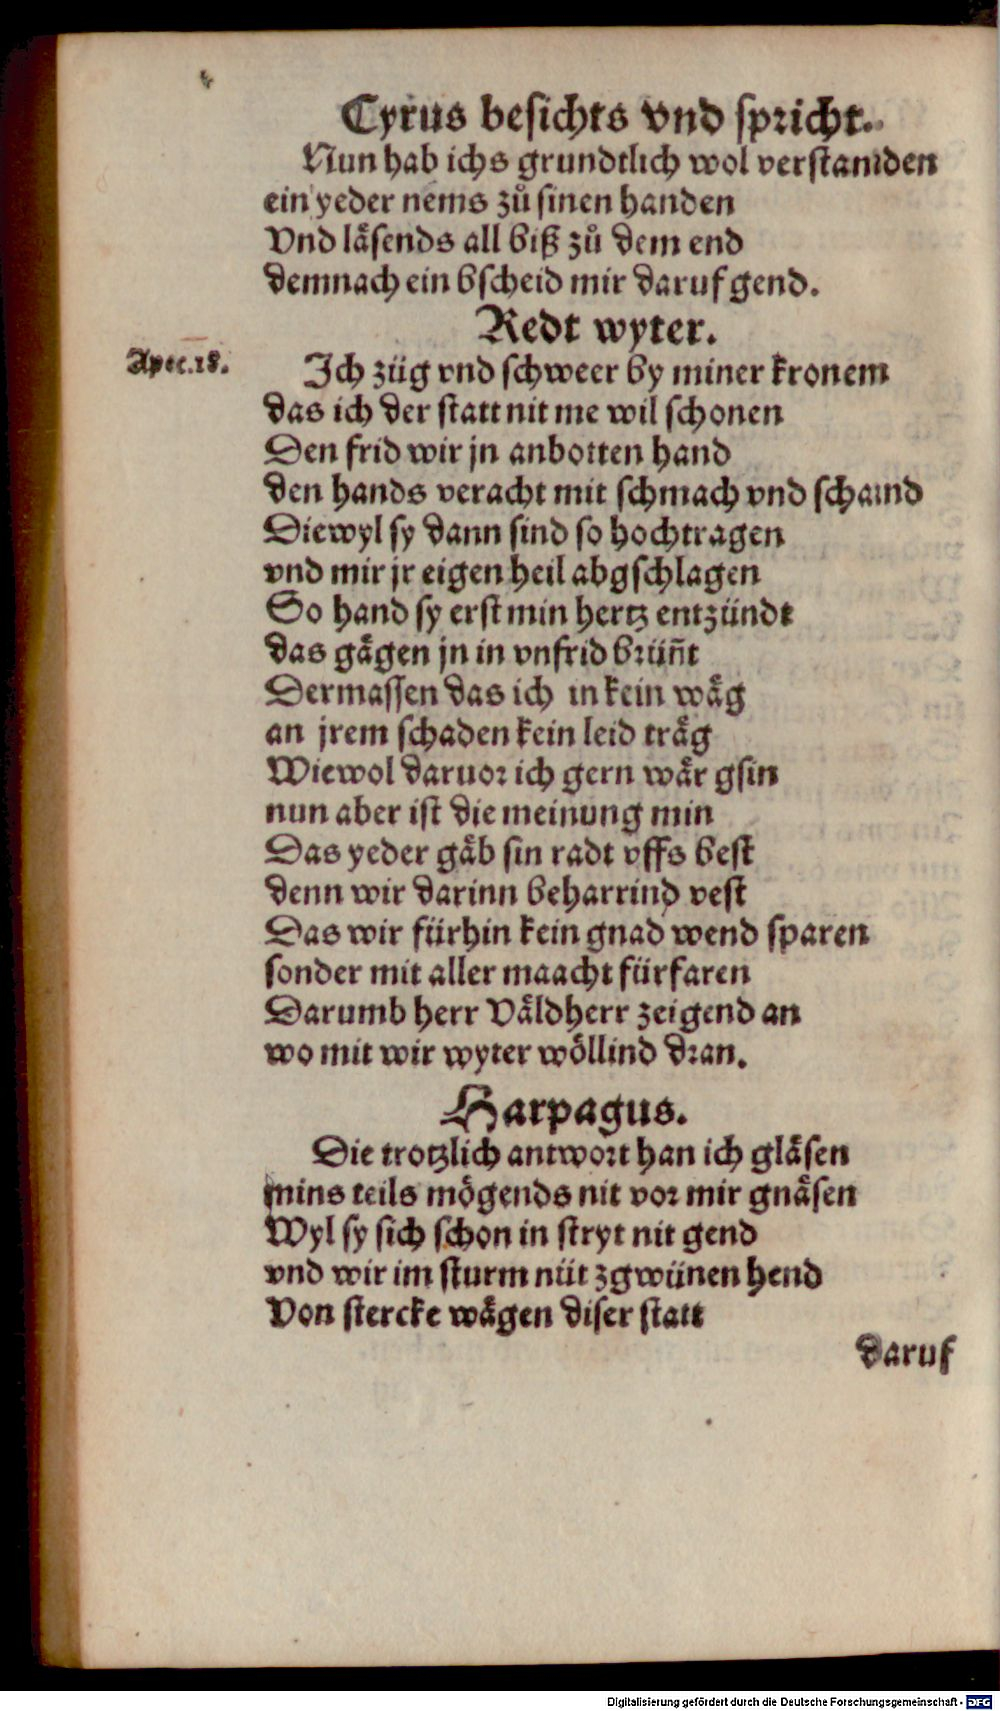 Cyrus besichts vnd spricht.
Nun hab ichs grundtlich wol verstanden
ein yeder nems zů sinen handen
Vnd läsends all biß zů dem end
demnach ein bscheid mir daruf gend.
Redt wyter.
Apoc.18.
Ich züg vnd schweer by miner kronem
das ich der statt nit me wil schonen
Den frid wir jn anbotten hand
den hands veracht mit schmach vnd schand
Diewyl sy dann sind so hochtragen
vnd mir jr eigen heil abgschlagen
So hand sy erst min hertz entzündt
das gägen jn in vnfrid brüñt
Dermassen das ich in kein wäg
an jrem schaden kein leid träg
Wiewol daruor ich gern wär gsin
nun aber ist die meinung min
Das yeder gäb sin radt vffs best
denn wir darinn beharrind vest
Das wir fürhin kein gnad wend sparen
sonder mit aller maacht fürfaren
Darumb herr Väldherr zeigend an
wo mit wir wyter wöllind dran.
Harpagus.
Die trotzlich antwort han ich gläsen
mins teils mögends nit vor mir gnäsen
Wyl sy sich schon in stryt nit gend
vnd wir im sturm nüt zgwünen hend
Von stercke wägen diser statt
daruf
Digitalisierung gefördert durch die Deutsche Forschungsgemeinschaft - DFG